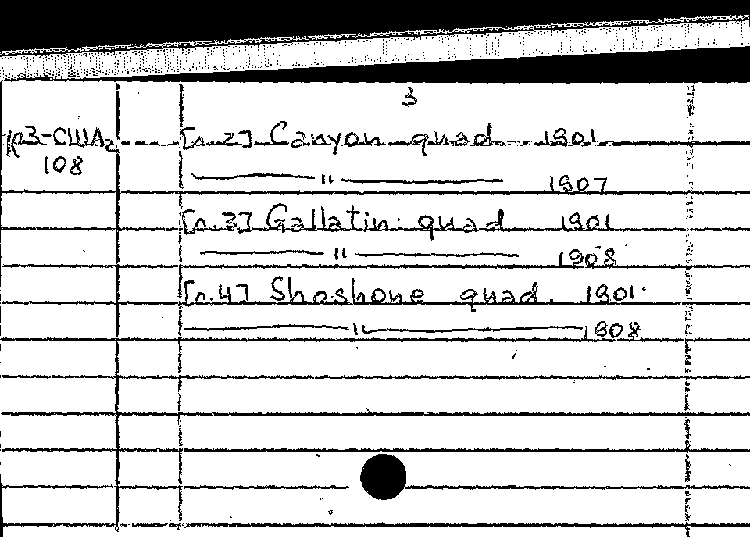 3
[n.2] Canyon quad 1901
108
" 1907
[n.3] Gallatin quad 1901
" 1908
[n.4] Shoshone quad. 1901
" 1908